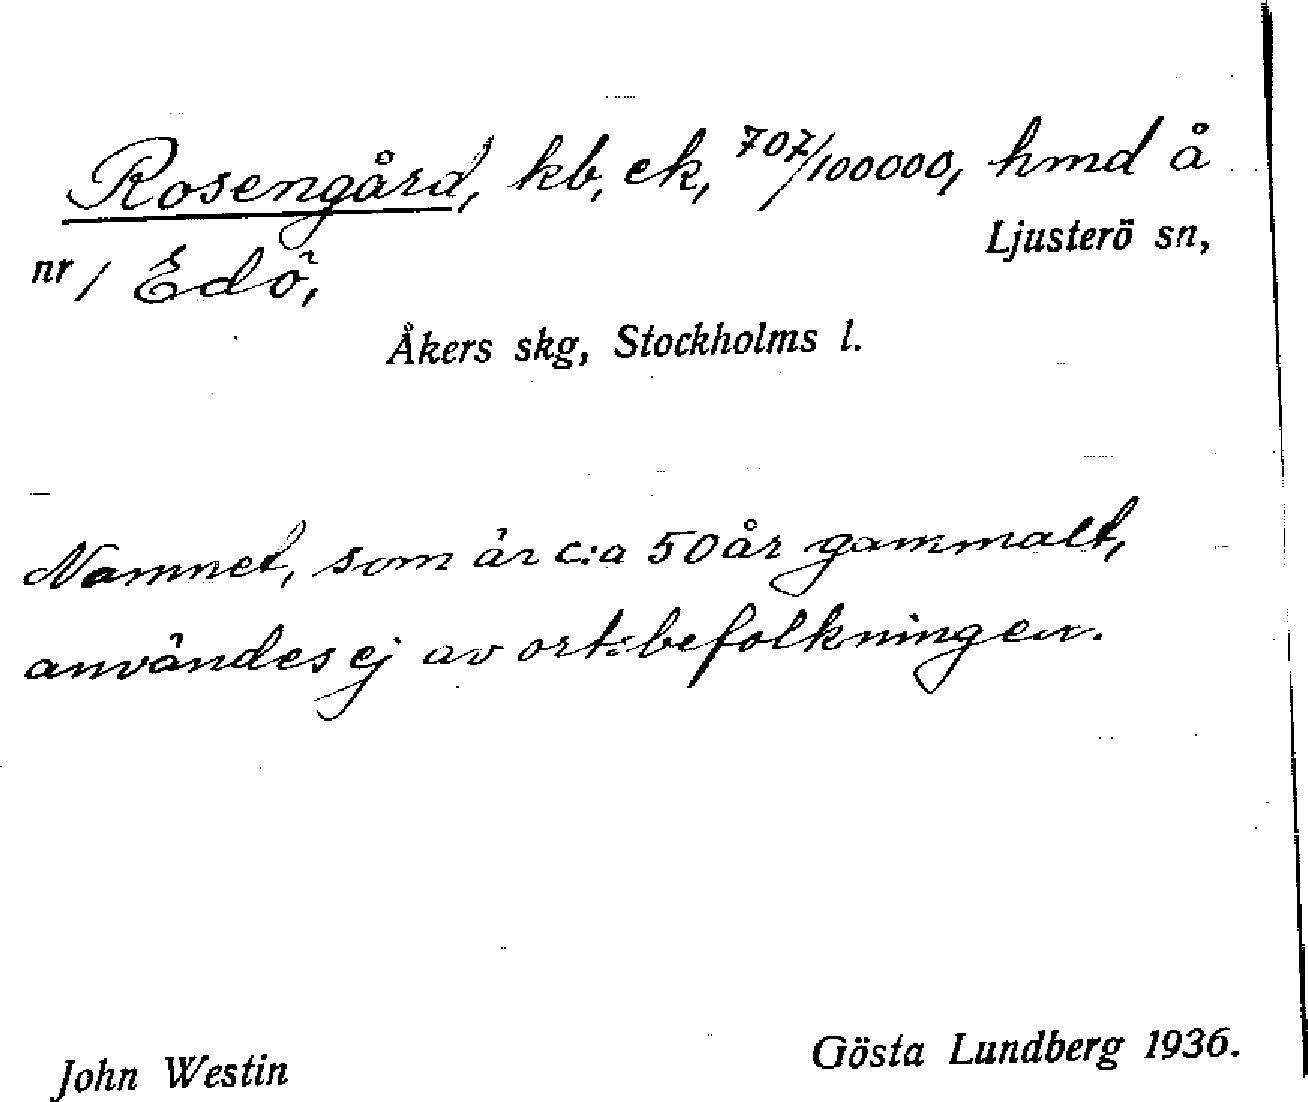 Rosengård, kb, ek, 707/100000, hmd å
Ljusterö sn,
nr 1 Edö,
Åkers skg, Stockholms l.
Namnet, som är c:a 50 år gammalt,
användes ej av ortsbefolkningen.
John Westin
Gösta Lundberg 1936.